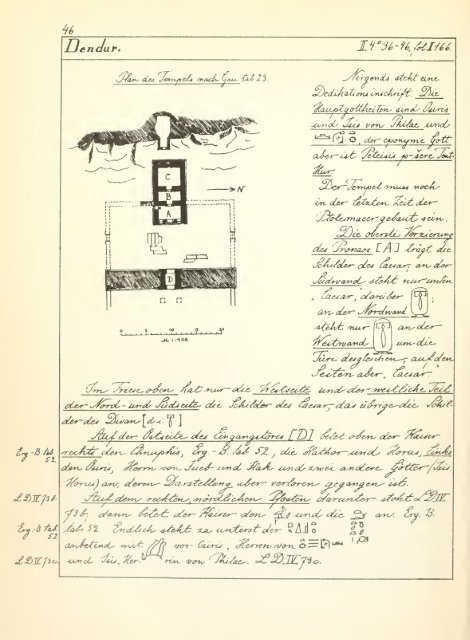 46
Dendur.
II. 4° 36-46, fol I 166.
Plan des Tempels nach Gau tab 23.
C
B
A
N
D
0 5 10 15 20
M. 1:400
Nirgends steht eine
Dedikationsinschrift. Die
Hauptgottheiten sind Osiris
und Isis von Philae und
, der eponyme Gott
aber ist Peteisis p-šere
Hur.
Der Tempel muss noch
in der letzten Zeit der
Ptolemaeer gebaut sein.
Die oberste Verzierung
des Pronaos [A] trägt die
Schilder des Caesar, an der
Südwand steht nur unten
"Caesar," darüber
an der Nordwand
steht nur an der
Westwand um die
Türe desgleichen, auf den
Seiten aber "Caesar."
Im Friese oben hat nur die Westseite und der westliche Teil
der Nord- und Südseite die Schilder des Caesar, das übrige die Schil-
der des Divan [d.i. ]
Auf der Ostseite des Eingangstores [D] betet oben der Kaiser
Erg-B. tab. 52
rechts den Chnuphis, Erg-B. tab 52, die Hathor und Horus, links
den Osiris, Herrn von und und zwei andere Götter (Isis,
Horus) an, deren Darstellung aber verloren gegangen ist.
LD IV 73b.
Auf dem rechten, nördlichen Pfosten darunter steht LD IV
73b, dann betet der Kaiser den und die an: Erg. B.
Erg-B tab. 52
tab. 52 Endlich steht zu unterst der
anbetend mit vor Osiris, Herren von
LD IV 73c.
und Isis, Her- rin von Philae. LD IV 73c.